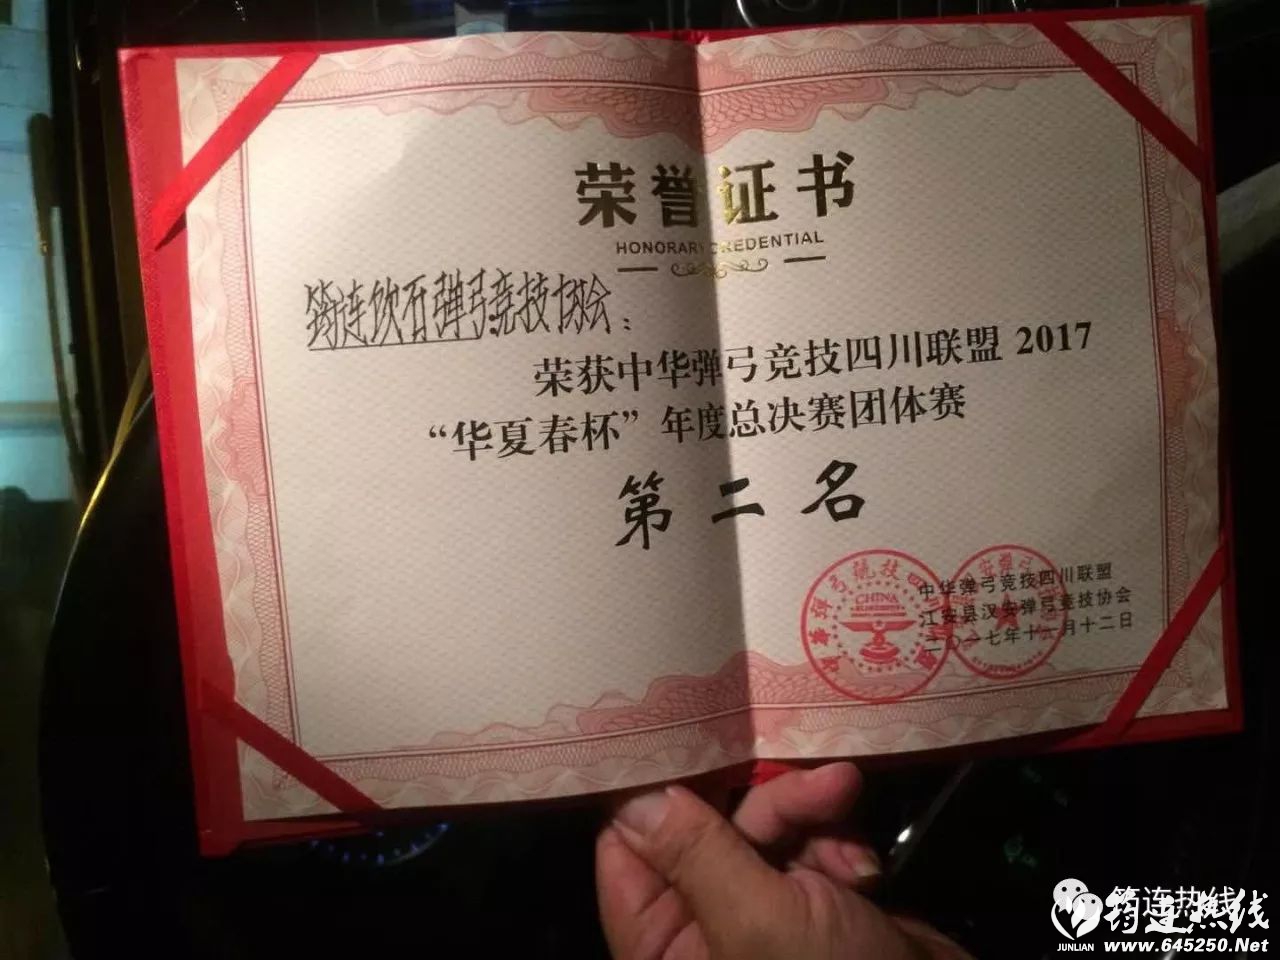 荣誉证书
HONORARY CREDENTIAL
筠连饮石弹弓竞技协会：
荣获中华弹弓竞技四川联盟 2017
“华夏春杯”年度总决赛团体赛
第二名
中华弹弓竞技四川联盟
江安县汉安弹弓竞技协会
二〇一七年十一月十二日
CHINA
筠连热线
筠连热线
JUNLIAN
www.645250.Net